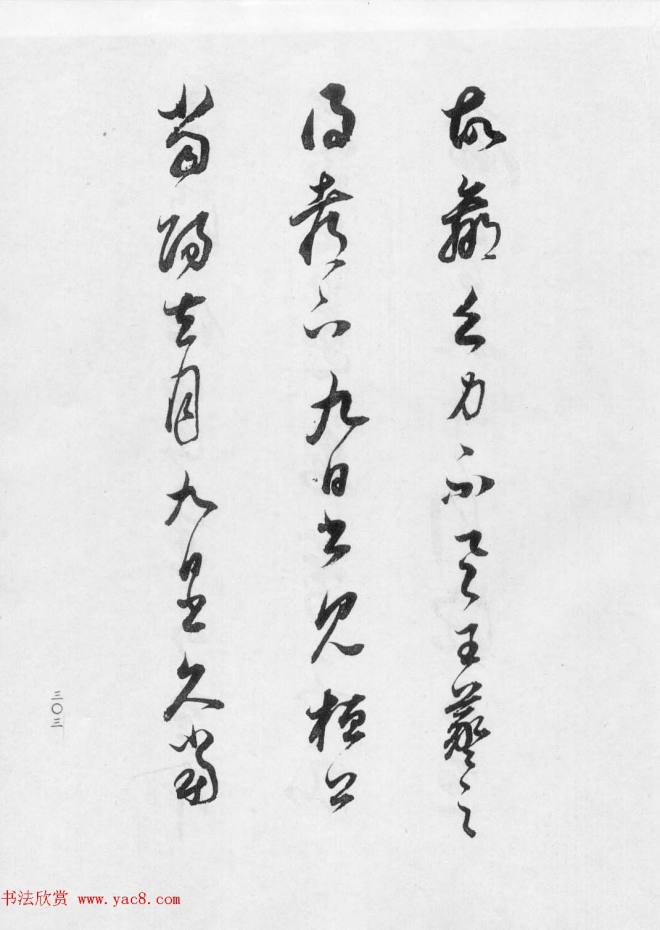 故羸乏力不一一王羲之
得都下九日書見桓公
當陽去月九日書久當
三〇三
书法欣赏 www.yac8.com